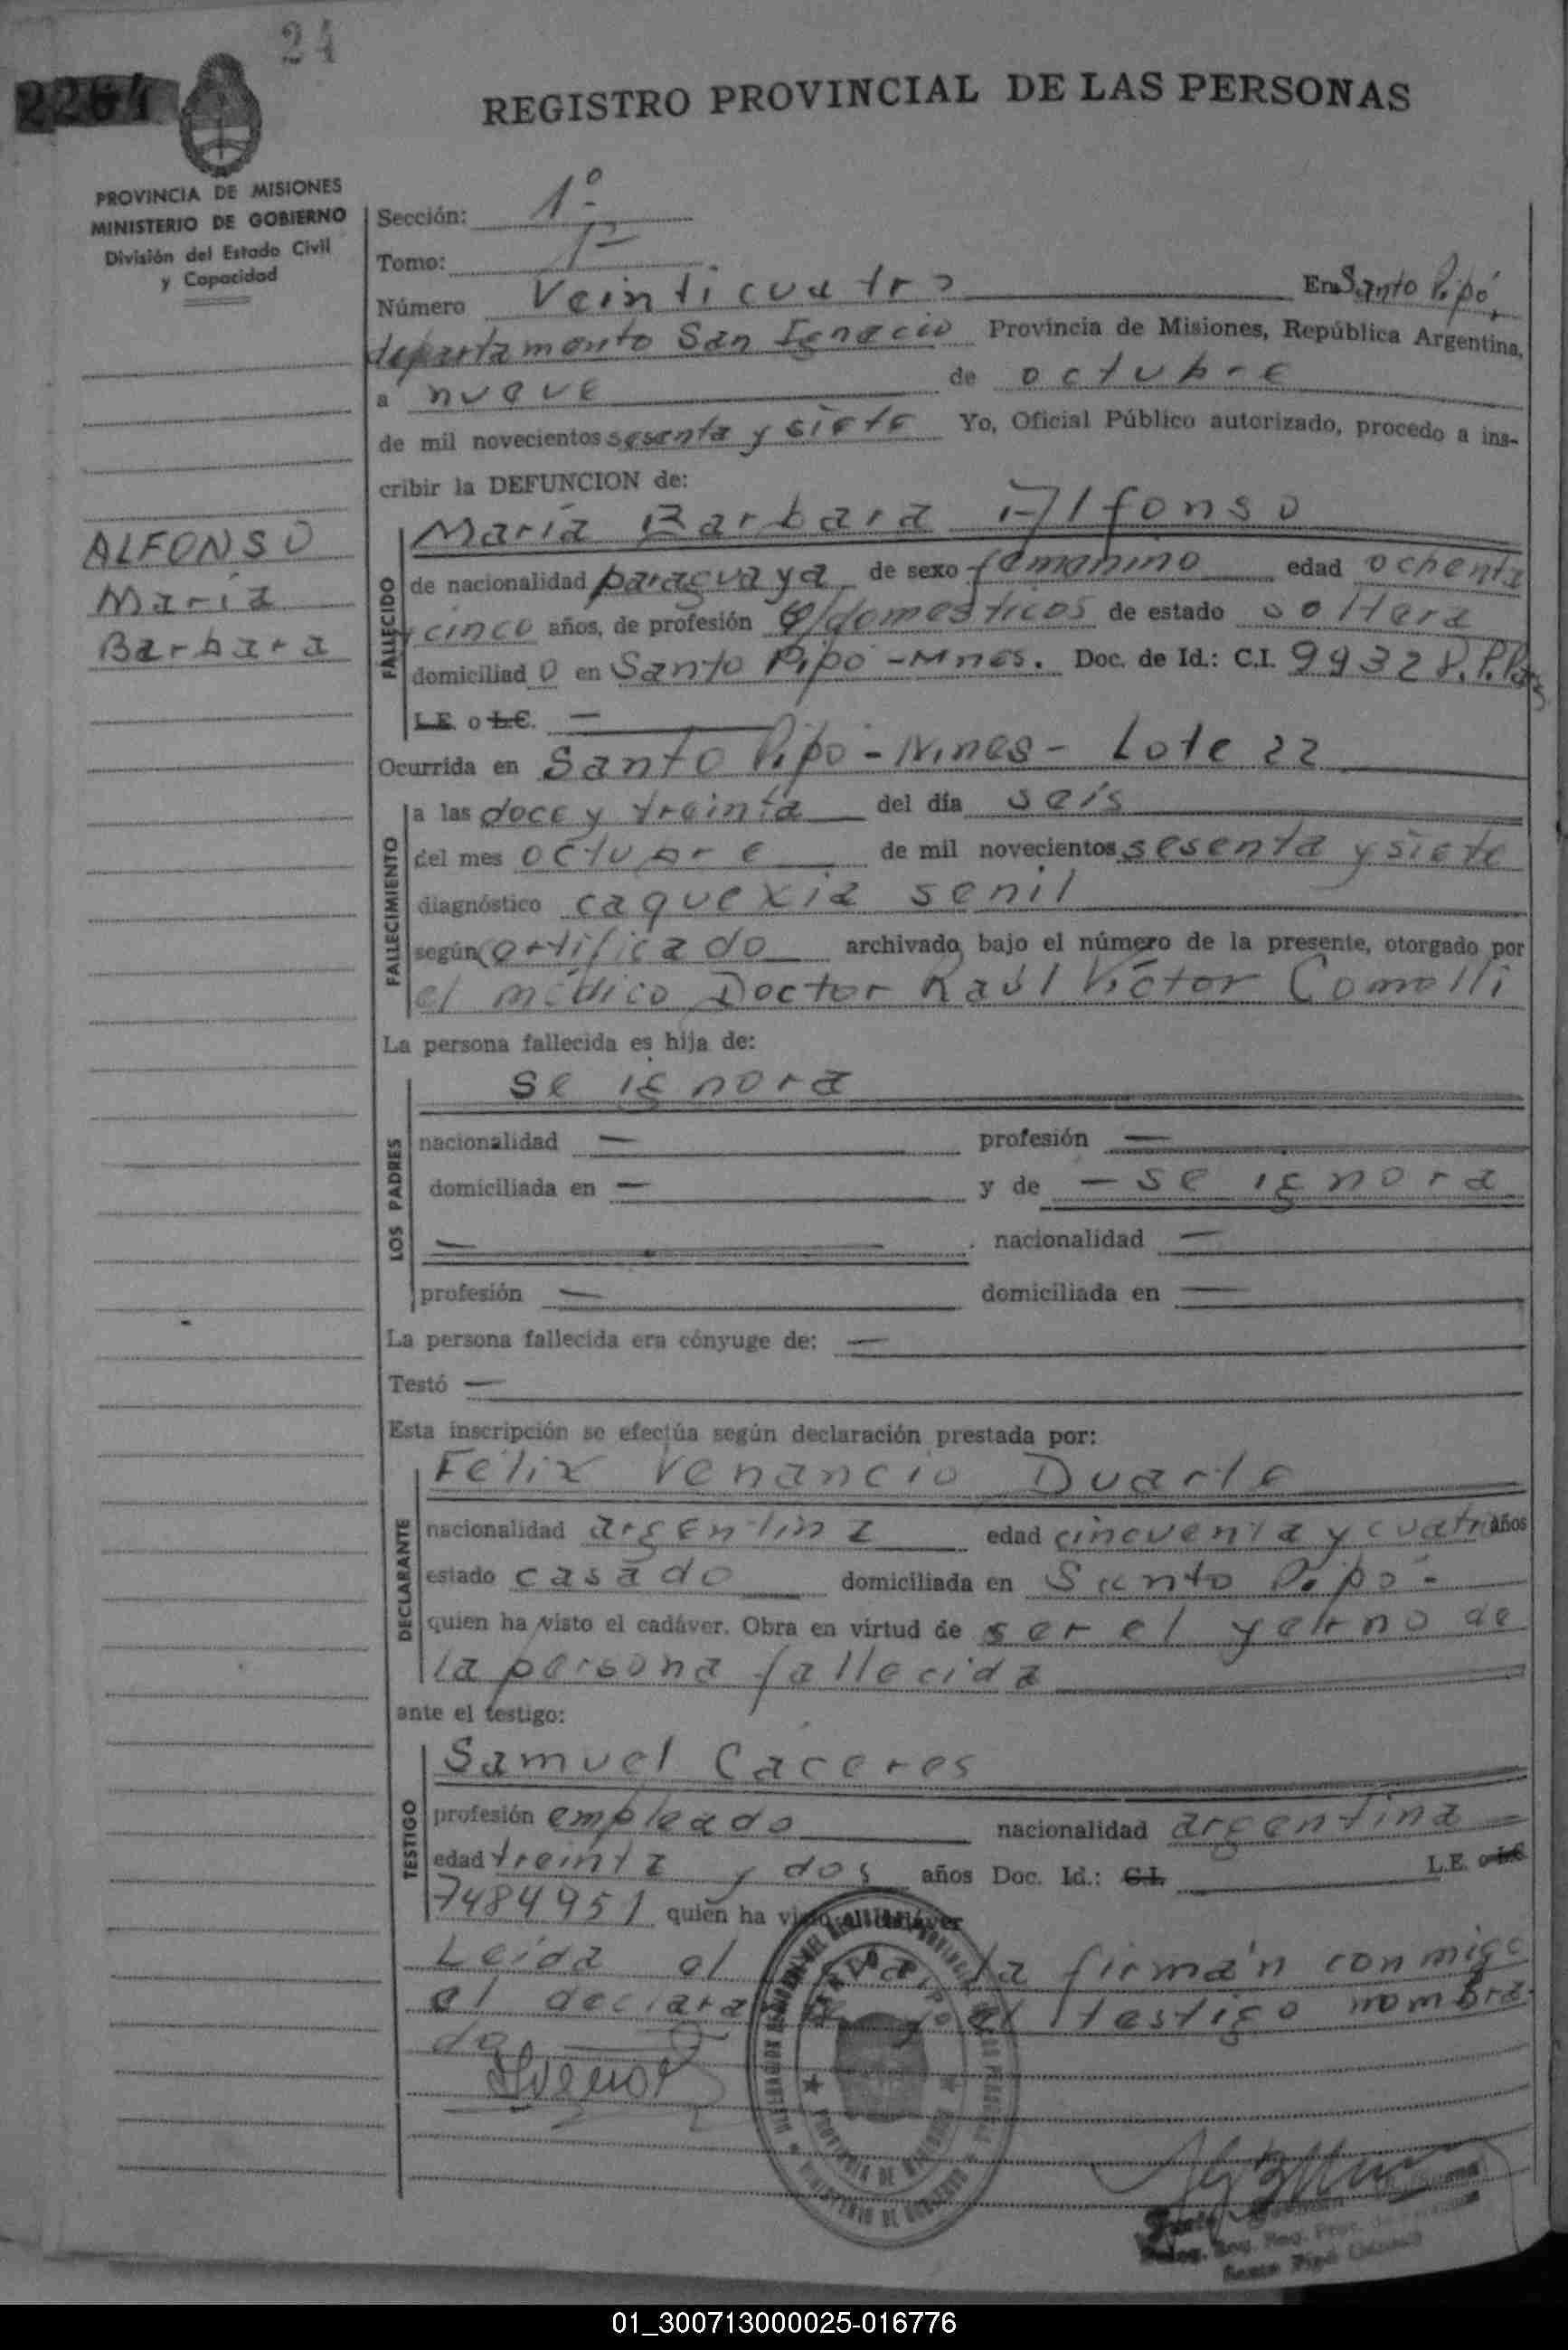 24
2264
REGISTRO PROVINCIAL DE LAS PERSONAS
PROVINCIA DE MISIONES
MINISTERIO DE GOBIERNO
División del Estado Civil
y Capacidad
Sección: 1º
Tomo: 1
Número Veinticuatro En Santo Pipó,
departamento San Ignacio Provincia de Misiones, República Argentina,
a nueve de octubre
de mil novecientos sesenta y siete Yo, Oficial Público autorizado, procedo a ins-
cribir la DEFUNCION de:
ALFONSO
María
Barbara
FALLECIDO
María Barbara Alfonso
de nacionalidad paraguaya de sexo femenino edad ochenta
y cinco años, de profesión q/domesticos de estado soltera
domiciliado en Santo Pipó - Mnes. Doc. de Id.: C.I. 99328 P.Pdas
L.E. o L.C. —
Ocurrida en Santo Pipó - Mnes - Lote 22
FALLECIMIENTO
a las doce y treinta del día seis
del mes octubre de mil novecientos sesenta y siete
diagnóstico caquexia senil
según certificado archivado bajo el número de la presente, otorgado por
el médico Doctor Raúl Víctor Comelli
La persona fallecida es hija de:
LOS PADRES
se ignora
nacionalidad — profesión —
domiciliada en — y de — se ignora
— . nacionalidad —
profesión — domiciliada en —
La persona fallecida era cónyuge de: —
Testó —
Esta inscripción se efectúa según declaración prestada por:
DECLARANTE
Félix Venancio Duarte
nacionalidad argentina edad cincuenta y cuatro años
estado casado domiciliada en Santo Pipó -
quien ha visto el cadáver. Obra en virtud de ser el yerno de
la persona fallecida
ante el testigo:
TESTIGO
Samuel Caceres
profesión empleado nacionalidad argentina
edad treinta y dos años Doc. Id.: C.I. L.E. o L.C.
7484951 quien ha visto el cadáver
Leída el acta, la firmán conmigo
el declarante y el testigo nombra-
do
PROVINCIA DE MISIONES
MINISTERIO DE GOBIERNO
Santo Pipó
01_300713000025-016776